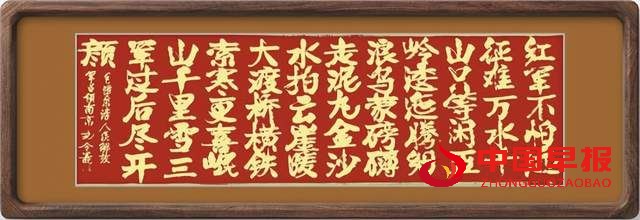 红军不怕远
征难万水千
山只等闲五
岭逶迤腾细
浪乌蒙磅礴
走泥丸金沙
水拍云崖暖
大渡桥横铁
索寒更喜岷
山千里雪三
军过后尽开
颜
毛泽东诗人民解放
军占领南京
中国早报
ZHONGGUOZAOBAO